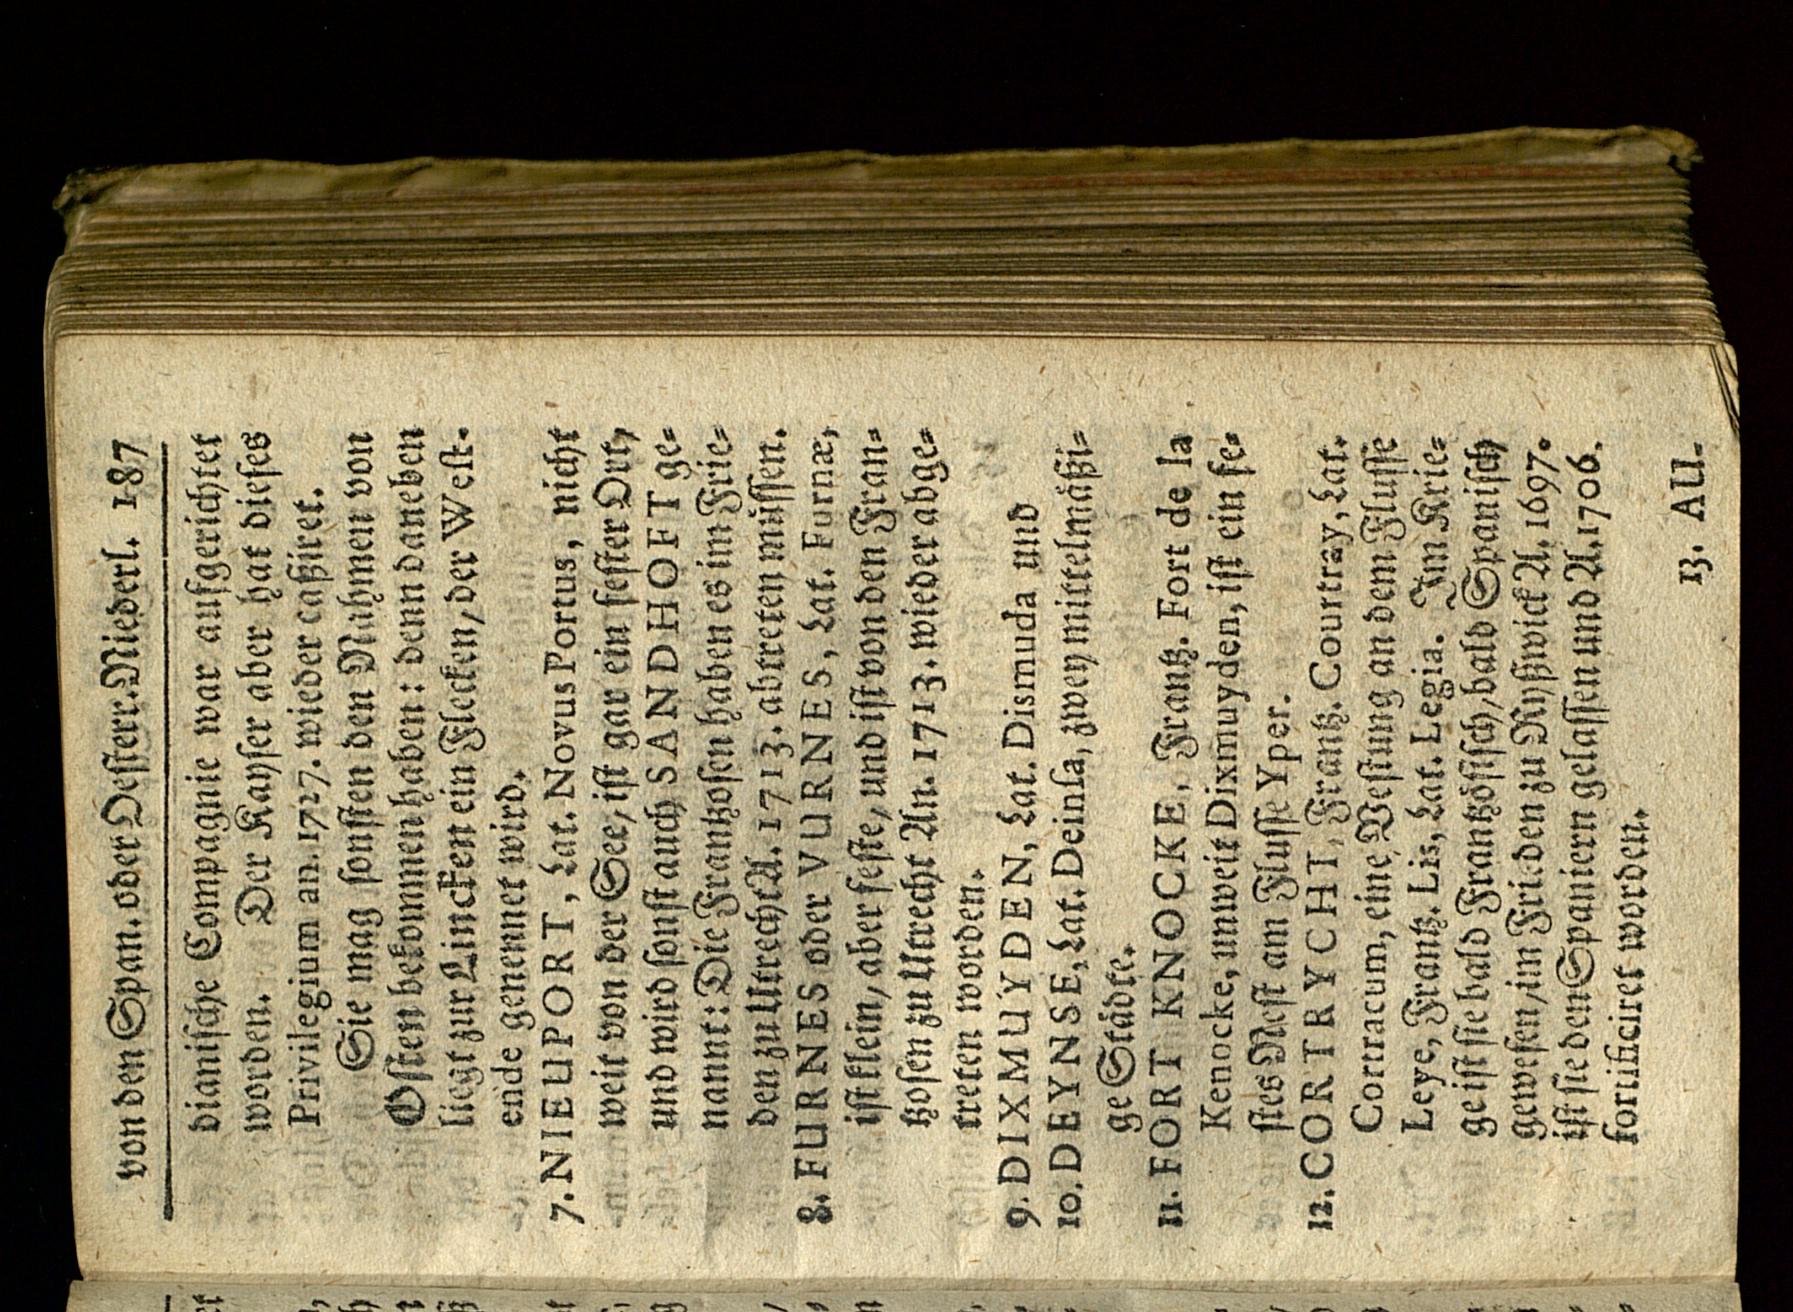 von den Span. oder Oesterr. Niederl. 187
dianische Compagnie war aufgerichtet
worden. Der Kayser aber hat dieses
Privilegium an. 1727. wieder caßiret.
Sie mag sonsten den Nahmen von
Osten bekommen haben: denn daneben
liegt zur Lincken ein Flecken, der West-
ende genennet wird.
7. NIEUPORT, Lat. Novus Portus, nicht
weit von der See, ist gar ein fester Ort,
und wird sonst auch SANDHOFT ge-
nannt: Die Frantzosen haben es im Frie-
den zu Utrecht A. 1713. abtreten müssen.
8. FURNES oder VURNES, Lat. Furnæ,
ist klein, aber feste, und ist von den Fran-
tzosen zu Utrecht An. 1713. wieder abge-
treten worden.
9. DIXMUYDEN, Lat. Dismuda und
10. DEYNSE, Lat. Deinsa, zwey mittelmäßi-
ge Städte.
11. FORT KNOCKE, Frantz. Fort de la
Kenocke, unweit Dixmuyden, ist ein fe-
stes Nest am Flusse Yper.
12. CORTRYCHT, Frantz. Courtray, Lat.
Cortracum, eine Vestung an dem Flusse
Leye, Frantz. Lis, Lat. Legia. Im Krie-
ge ist sie bald Frantzösisch, bald Spanisch
gewesen, im Frieden zu Ryßwick A. 1697.
ist sie den Spaniern gelassen und A. 1706.
fortificiret worden.
13. AU-